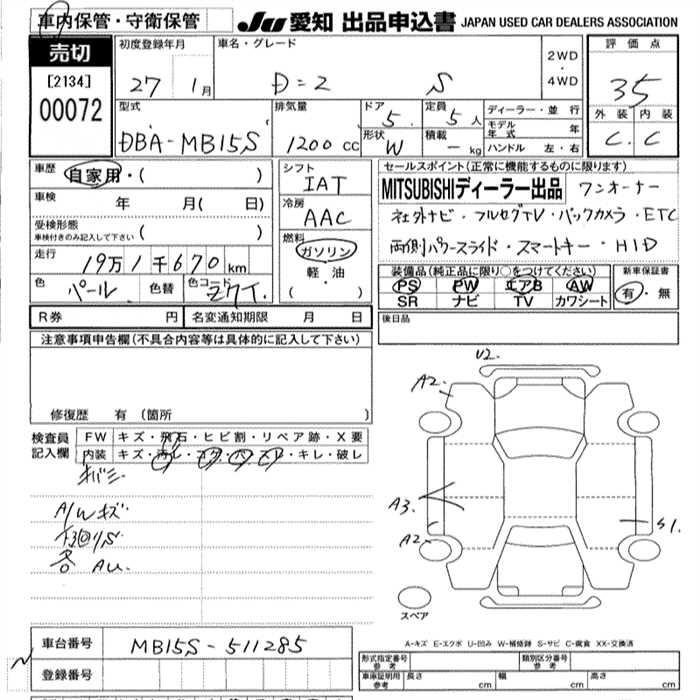 車内保管・守衛保管
JU 愛知 出品申込書 JAPAN USED CAR DEALERS ASSOCIATION
売切
[2134]
00072
初度登録年月
27 1月
車名・グレード
D=2 S
2WD
・
4WD
評価点
35
外装 内装
C. C
型式
DBA-MB15S
排気量
1200 cc
ドア
5.
形状
W
定員
5人
積載
- kg
ディーラー・並行
モデル年式 年
ハンドル 左・右
車歴
自家用・( )
車検
年 月( 日)
受検形態
車検付きのみ記入して下さい ( )
走行
19万1千670 km
色
パール
色替
色コード
シフト
IAT
冷房
AAC
燃料
ガソリン
軽・油
( )
セールスポイント(正常に機能するものに限ります)
MITSUBISHIディーラー出品 ワンオーナー
社外ナビ・フルセグTV・バックカメラ・ETC
両側パワースライド・スマートキー・HID
装備品(純正品に限り○をつけてください)
PS PW エアB AW
SR ナビ TV カワシート
新車保証書
有・無
R券 円
名変通知期限 月 日
後日品
注意事項申告欄(不具合内容等は具体的に記入して下さい)
修復歴 有(箇所 )
検査員
記入欄
FW キズ・飛石・ヒビ割・リペア跡・X要
内装 キズ・汚レ・コゲ・穴・スレ・キレ・破レ
A/Wキズ
下回りS
各 AU.
U2.
A2.
A3.
A2
S1.
スペア
A-キズ E-エクボ U-凹み W-補修跡 S-サビ C-腐食 XX-交換済
車台番号
MB15S-511285
登録番号
形式指定番号
参考
類別区分番号
参考
車庫証明用
参考
長さ cm
幅 cm
高さ cm